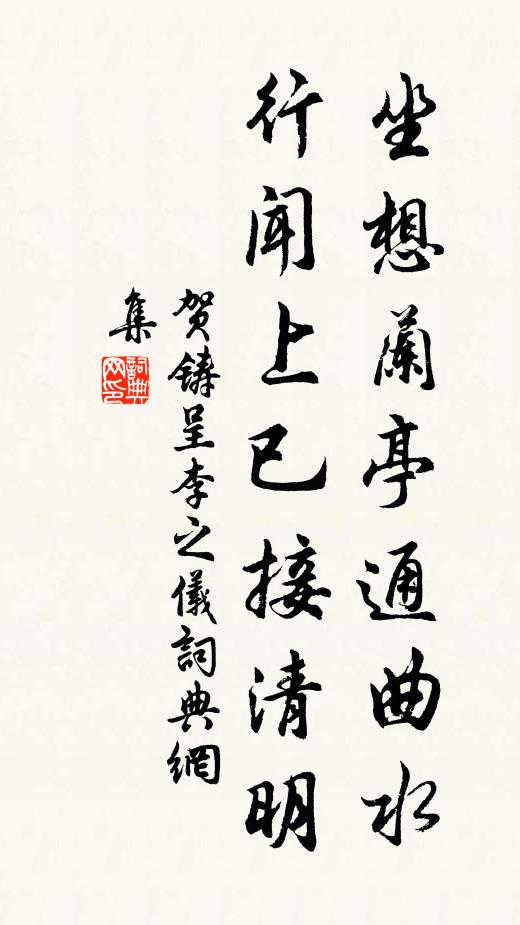 坐想蘭亭通曲水
行聞上巳接清明
賀鑄呈李之儀詞典網
集
詞典
網印